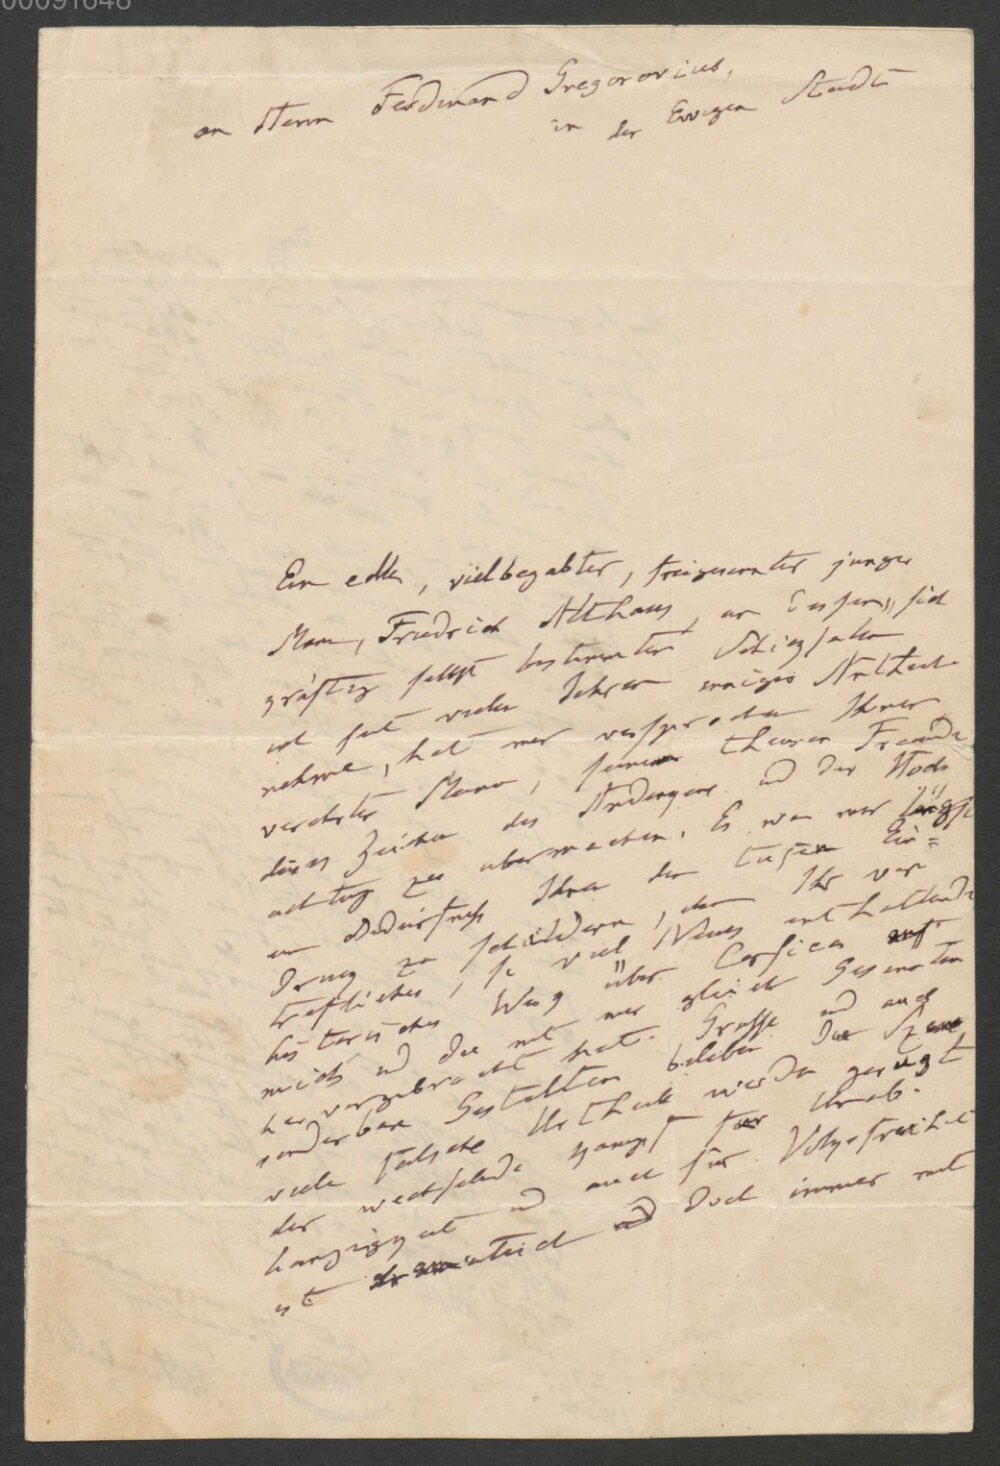 00091648
an Herrn Ferdinand Gregorovius,
in der Ewigen Stadt
Ein edler, vielbegabter, freigesinnter junger
Mann, Friedrich Althaus, an dessen, sich
kräftig selbst bestimmten Schicksalen
ich seit vielen Jahren inniges Antheil
nehme, hat mir versprochen Ihnen
verehrter Mann, seinem theuren Freunde
dieses Zeichen des Andenkens und der Hoch
achtung zu übermachen. Es war mir längst
ein Bedürfniss Ihnen den tiefen Ein=
druck zu schildern, den Ihr vor
trefliches, so viel Neues enthaltende
historisches Werk über Corsica auf
mich und die mit mir gleich Gesinnten
hervorgebracht hat. Grosse und auch
sonderbare Gestalten beleben die Szene
viele falsche Urtheile werden gerügt
der wechselnde Kampf für Unab-
hängigkeit und auch für Volksfreiheit
ist dramatisch und doch immer mit